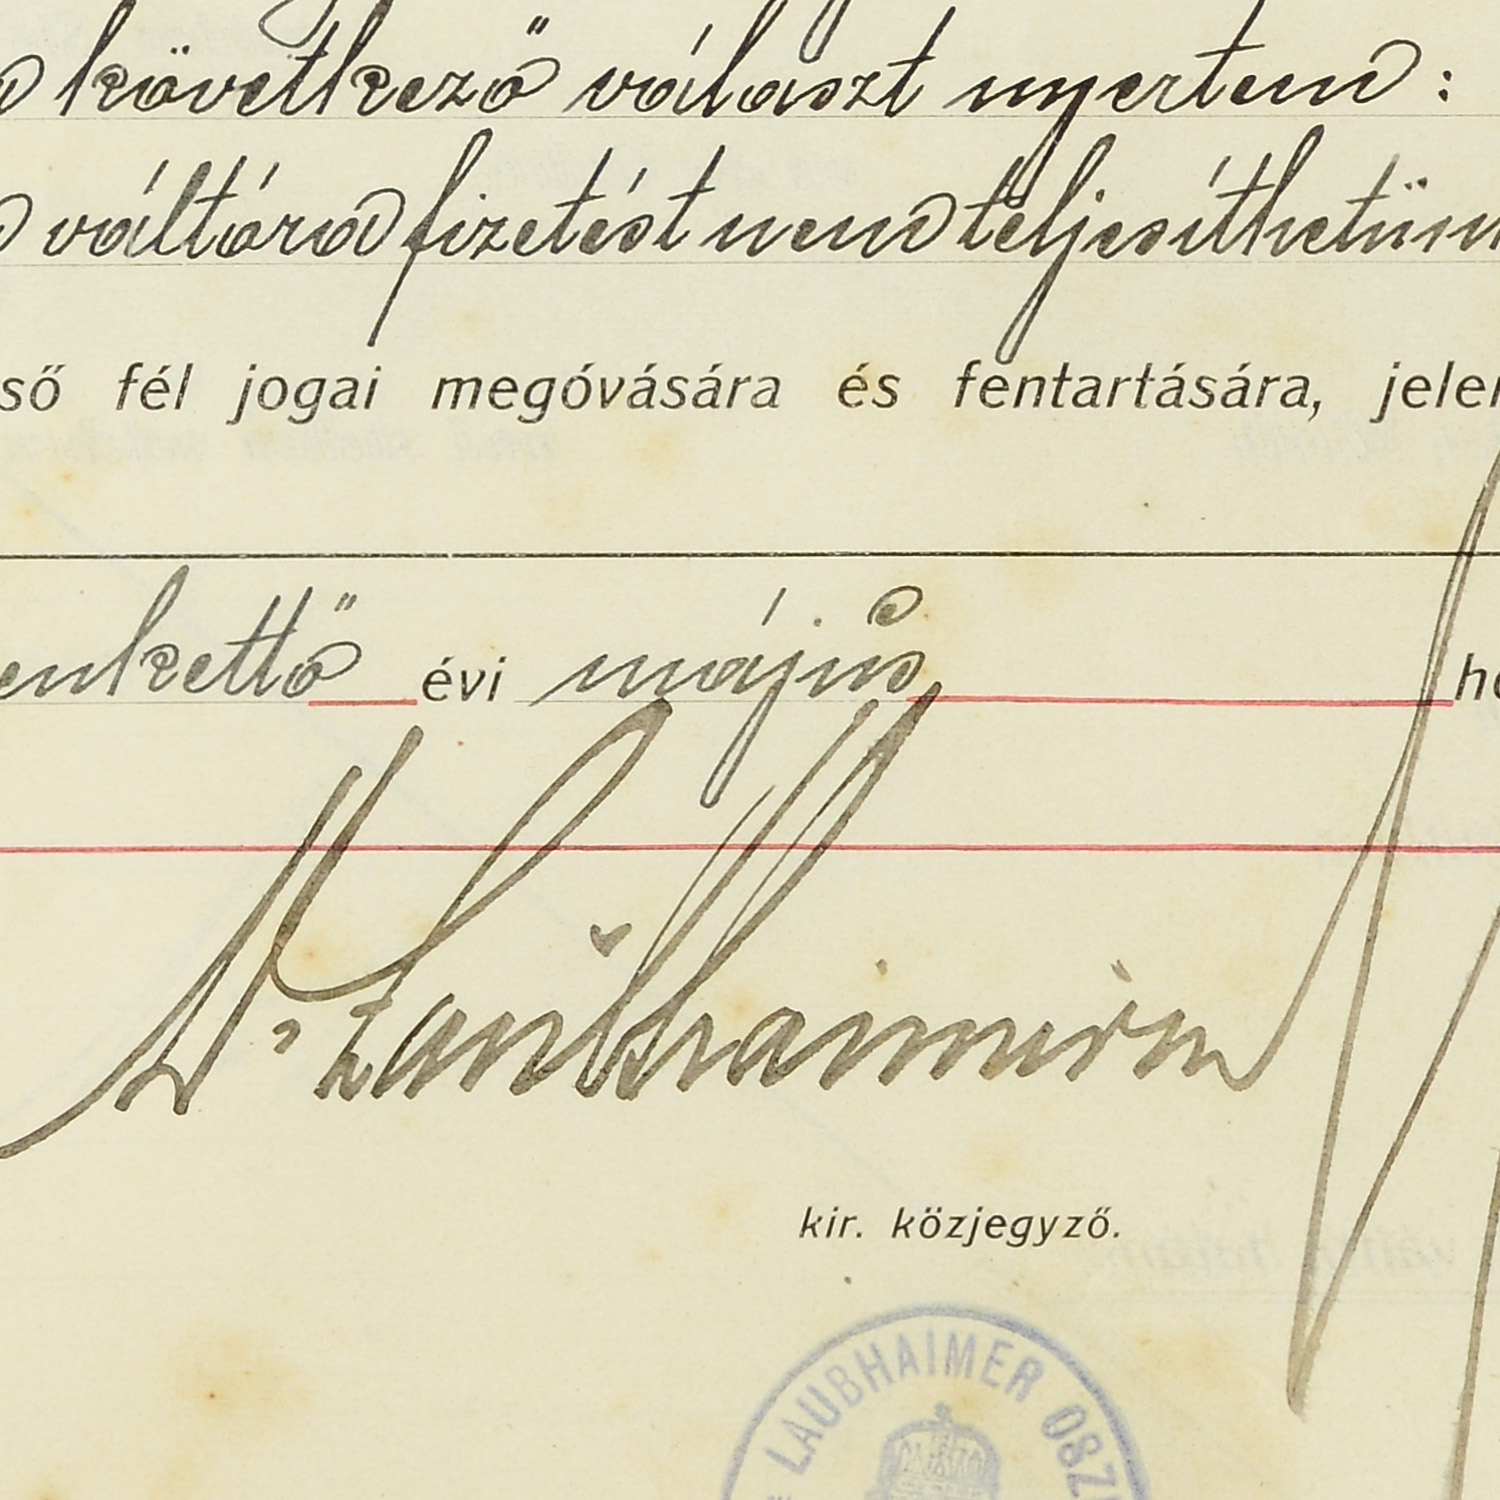 a következő választ nyertem :
a váltóra fizetést nem teljesíthetünk
ső fél jogai megóvására és fentartására, jelen
enkettő évi május hó
Dr Laubhaimer
kir. közjegyző.
LAUBHAIMER OSZ